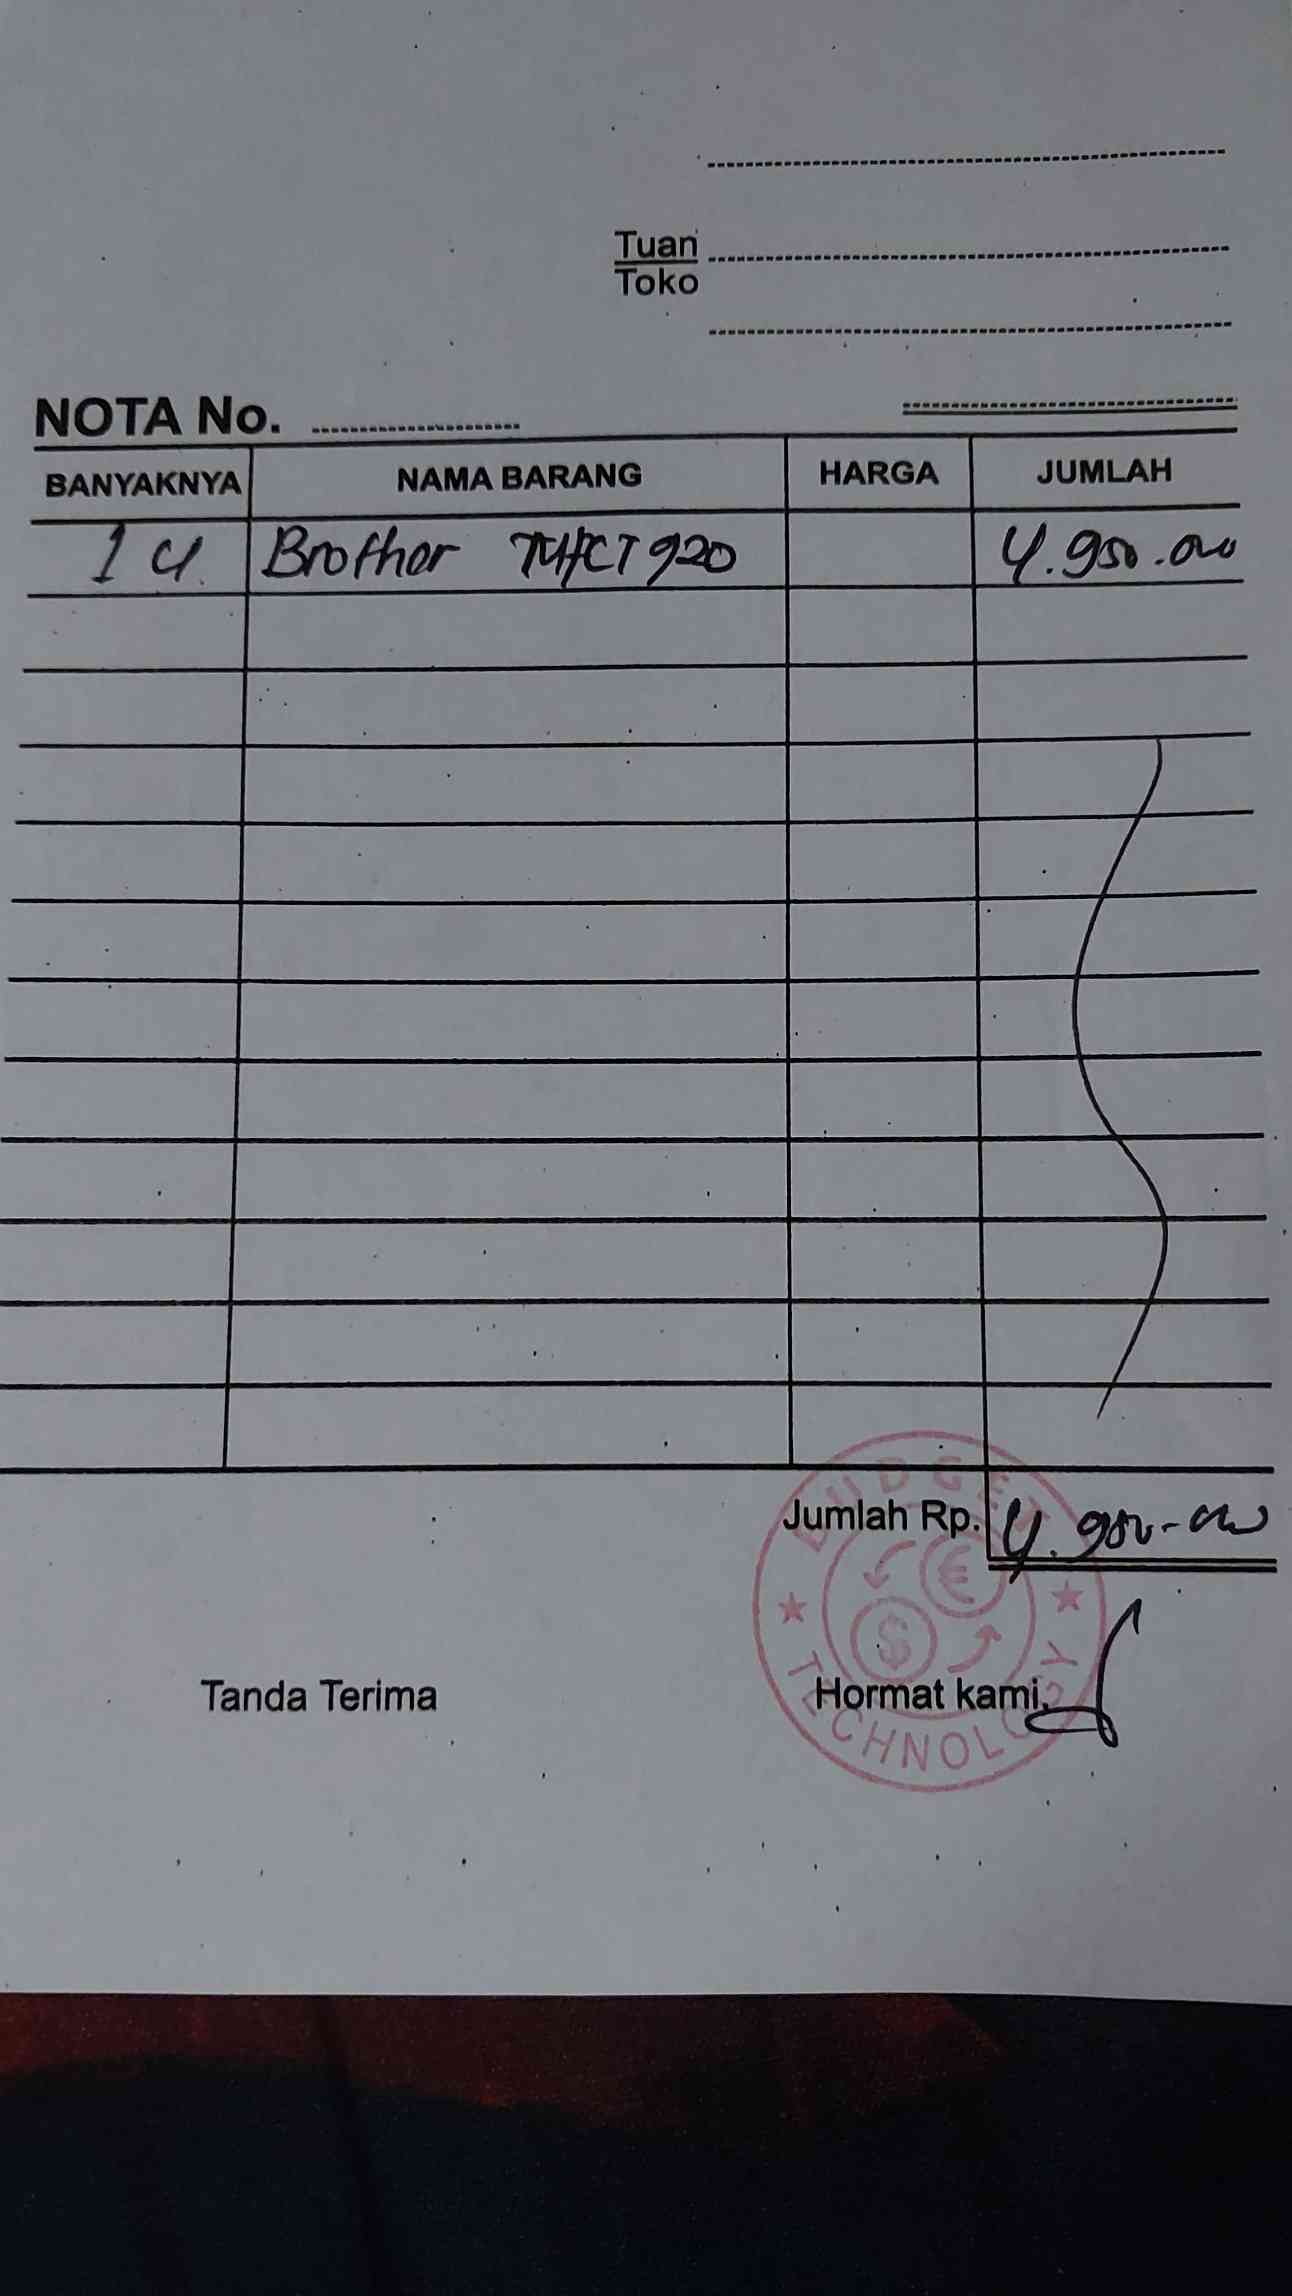 Tuan
Toko
NOTA No.
BANYAKNYA NAMA BARANG HARGA JUMLAH
1 U. Brother CT 920 4.950.000
Jumlah Rp. 4.950.000
Tanda Terima Hormat kami,
BUDGET TECHNOLOGY